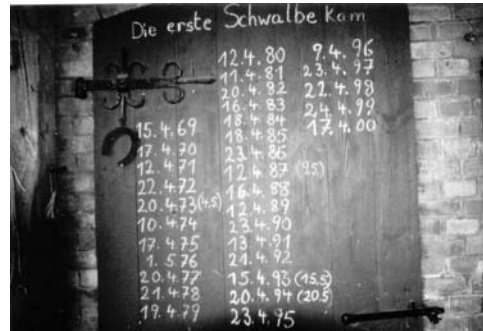 Die erste Schwalbe kam
15.4.69
17.4.70
12.4.71
22.4.72
20.4.73 (4.5)
10.4.74
17.4.75
1.5.76
20.4.77
21.4.78
19.4.79
12.4.80
11.4.81
20.4.82
16.4.83
18.4.84
18.4.85
23.4.86
12.4.87 (9.5)
16.4.88
12.4.89
23.4.90
13.4.91
21.4.92
15.4.93 (15.5)
20.4.94 (20.5)
23.4.95
9.4.96
23.4.97
22.4.98
24.4.99
17.4.00